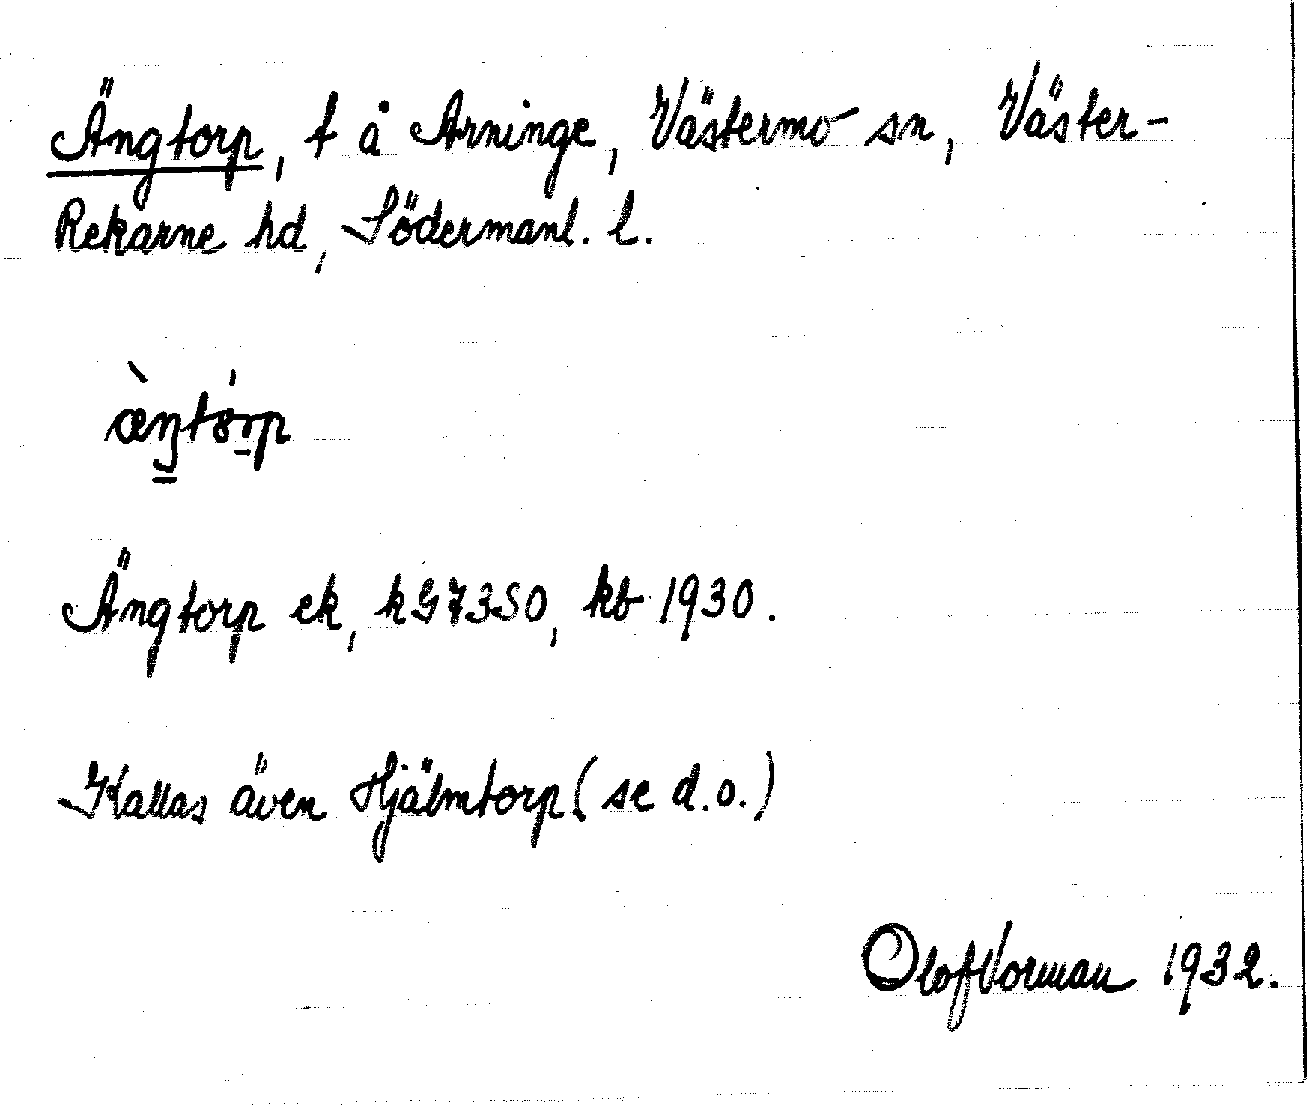 Ängtorp, t å Arninge, Västermo sn, Väster-
Rekarne hd, Södermanl. l.
æ̀ŋtórp
Ängtorp ek, kG7350, kb 1930.
Kallas även Hjälmtorp (se d.o.)
Olof Vorman 1932.